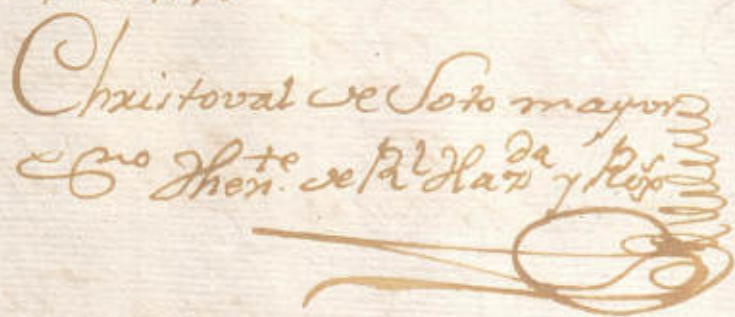 Christoval de Soto mayor
Es.no Then.te de Rl Haz.da y Rex.s